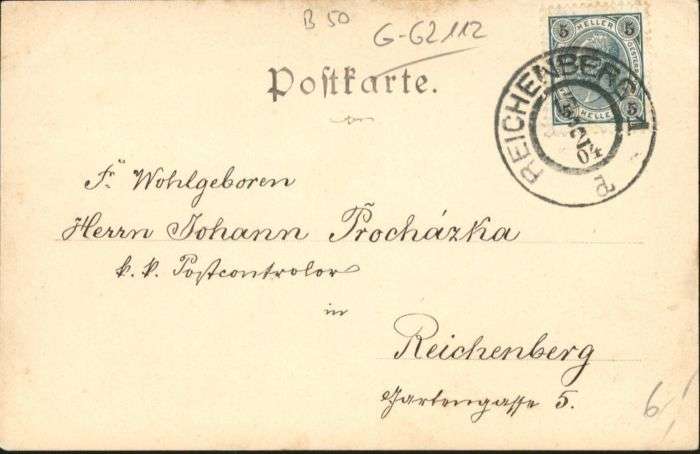 B 50
G-62112
5 HELLER 5
5 HELLER 5
Postkarte.
REICHENBERG 1
04
Sr Wohlgeboren
Herrn Johann Procházka
k. k. Postcontrolor
in
Reichenberg
Gartengasse 5.
6,